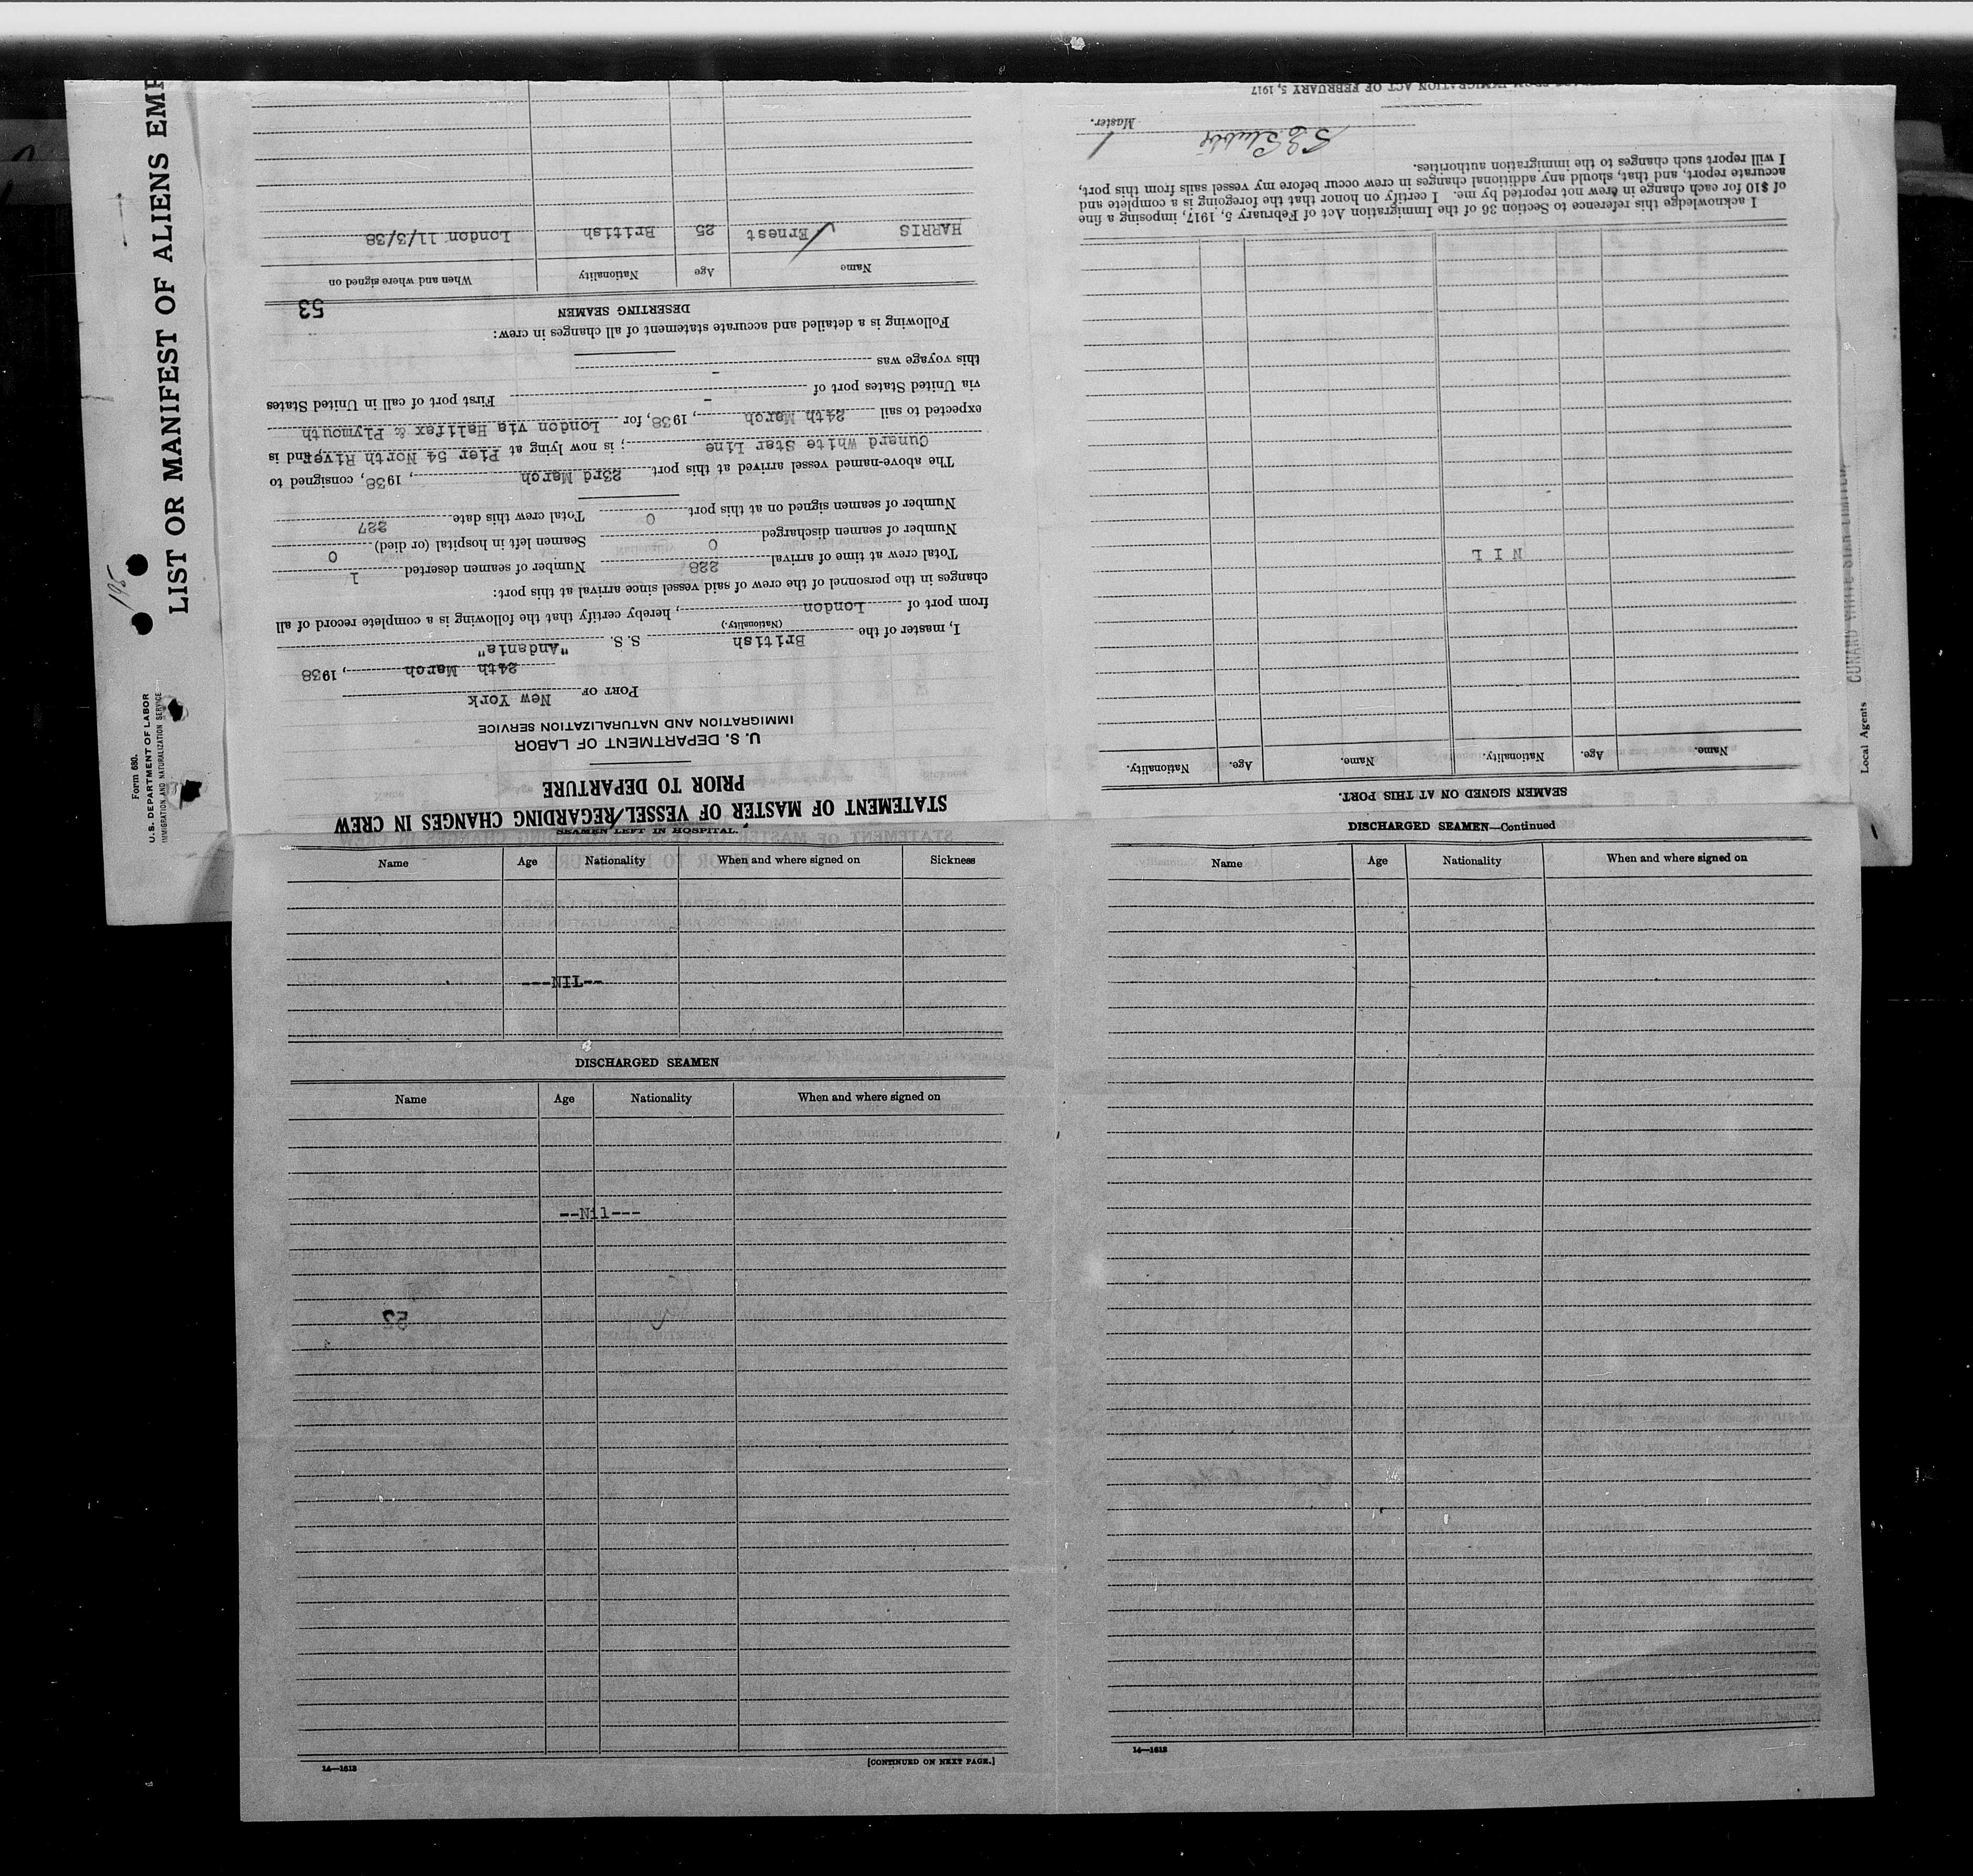 Form 680.
U.S. DEPARTMENT OF LABOR
IMMIGRATION AND NATURALIZATION SERVICE
LIST OR MANIFEST OF ALIENS EMP
195
STATEMENT OF MASTER OF VESSEL REGARDING CHANGES IN CREW
PRIOR TO DEPARTURE
U. S. DEPARTMENT OF LABOR
IMMIGRATION AND NATURALIZATION SERVICE
PORT OF New York
24th March, 1938
I, master of the British S. S. "Andania"
(Nationality.)
from port of London, hereby certify that the following is a complete record of all
changes in the personnel of the crew of said vessel since arrival at this port:
Total crew at time of arrival 228 Number of seamen deserted 1
Number of seamen discharged 0 Seamen left in hospital (or died) 0
Number of seamen signed on at this port 0 Total crew this date 227
The above-named vessel arrived at this port 23rd March, 1938, consigned to
Cunard White Star Line; is now lying at Pier 54 North River, and is
expected to sail 24th March, 1938, for London via Halifax & Plymouth
via United States port of - First port of call in United States
this voyage was -
Following is a detailed and accurate statement of all changes in crew:
DESERTING SEAMEN
53
Name Age Nationality When and where signed on
HARRIS Ernest 25 British London 11/3/38
SEAMEN LEFT IN HOSPITAL.
Name Age Nationality When and where signed on Sickness
---NIL--
DISCHARGED SEAMEN
Name Age Nationality When and where signed on
--Nil---
14—1613
[CONTINUED ON NEXT PAGE.]
DISCHARGED SEAMEN—Continued
Name Age Nationality When and where signed on
14—1613
SEAMEN SIGNED ON AT THIS PORT.
Name. Age. Nationality. Name. Age. Nationality.
N I L
I acknowledge this reference to Section 36 of the Immigration Act of February 5, 1917, imposing a fine
of $10 for each change in crew not reported by me. I certify on honor that the foregoing is a complete and
accurate report, and that, should any additional changes in crew occur before my vessel sails from this port,
I will report such changes to the immigration authorities.
Master.
FROM IMMIGRATION ACT OF FEBRUARY 5, 1917
Local Agents
CUNARD WHITE STAR LIMITED